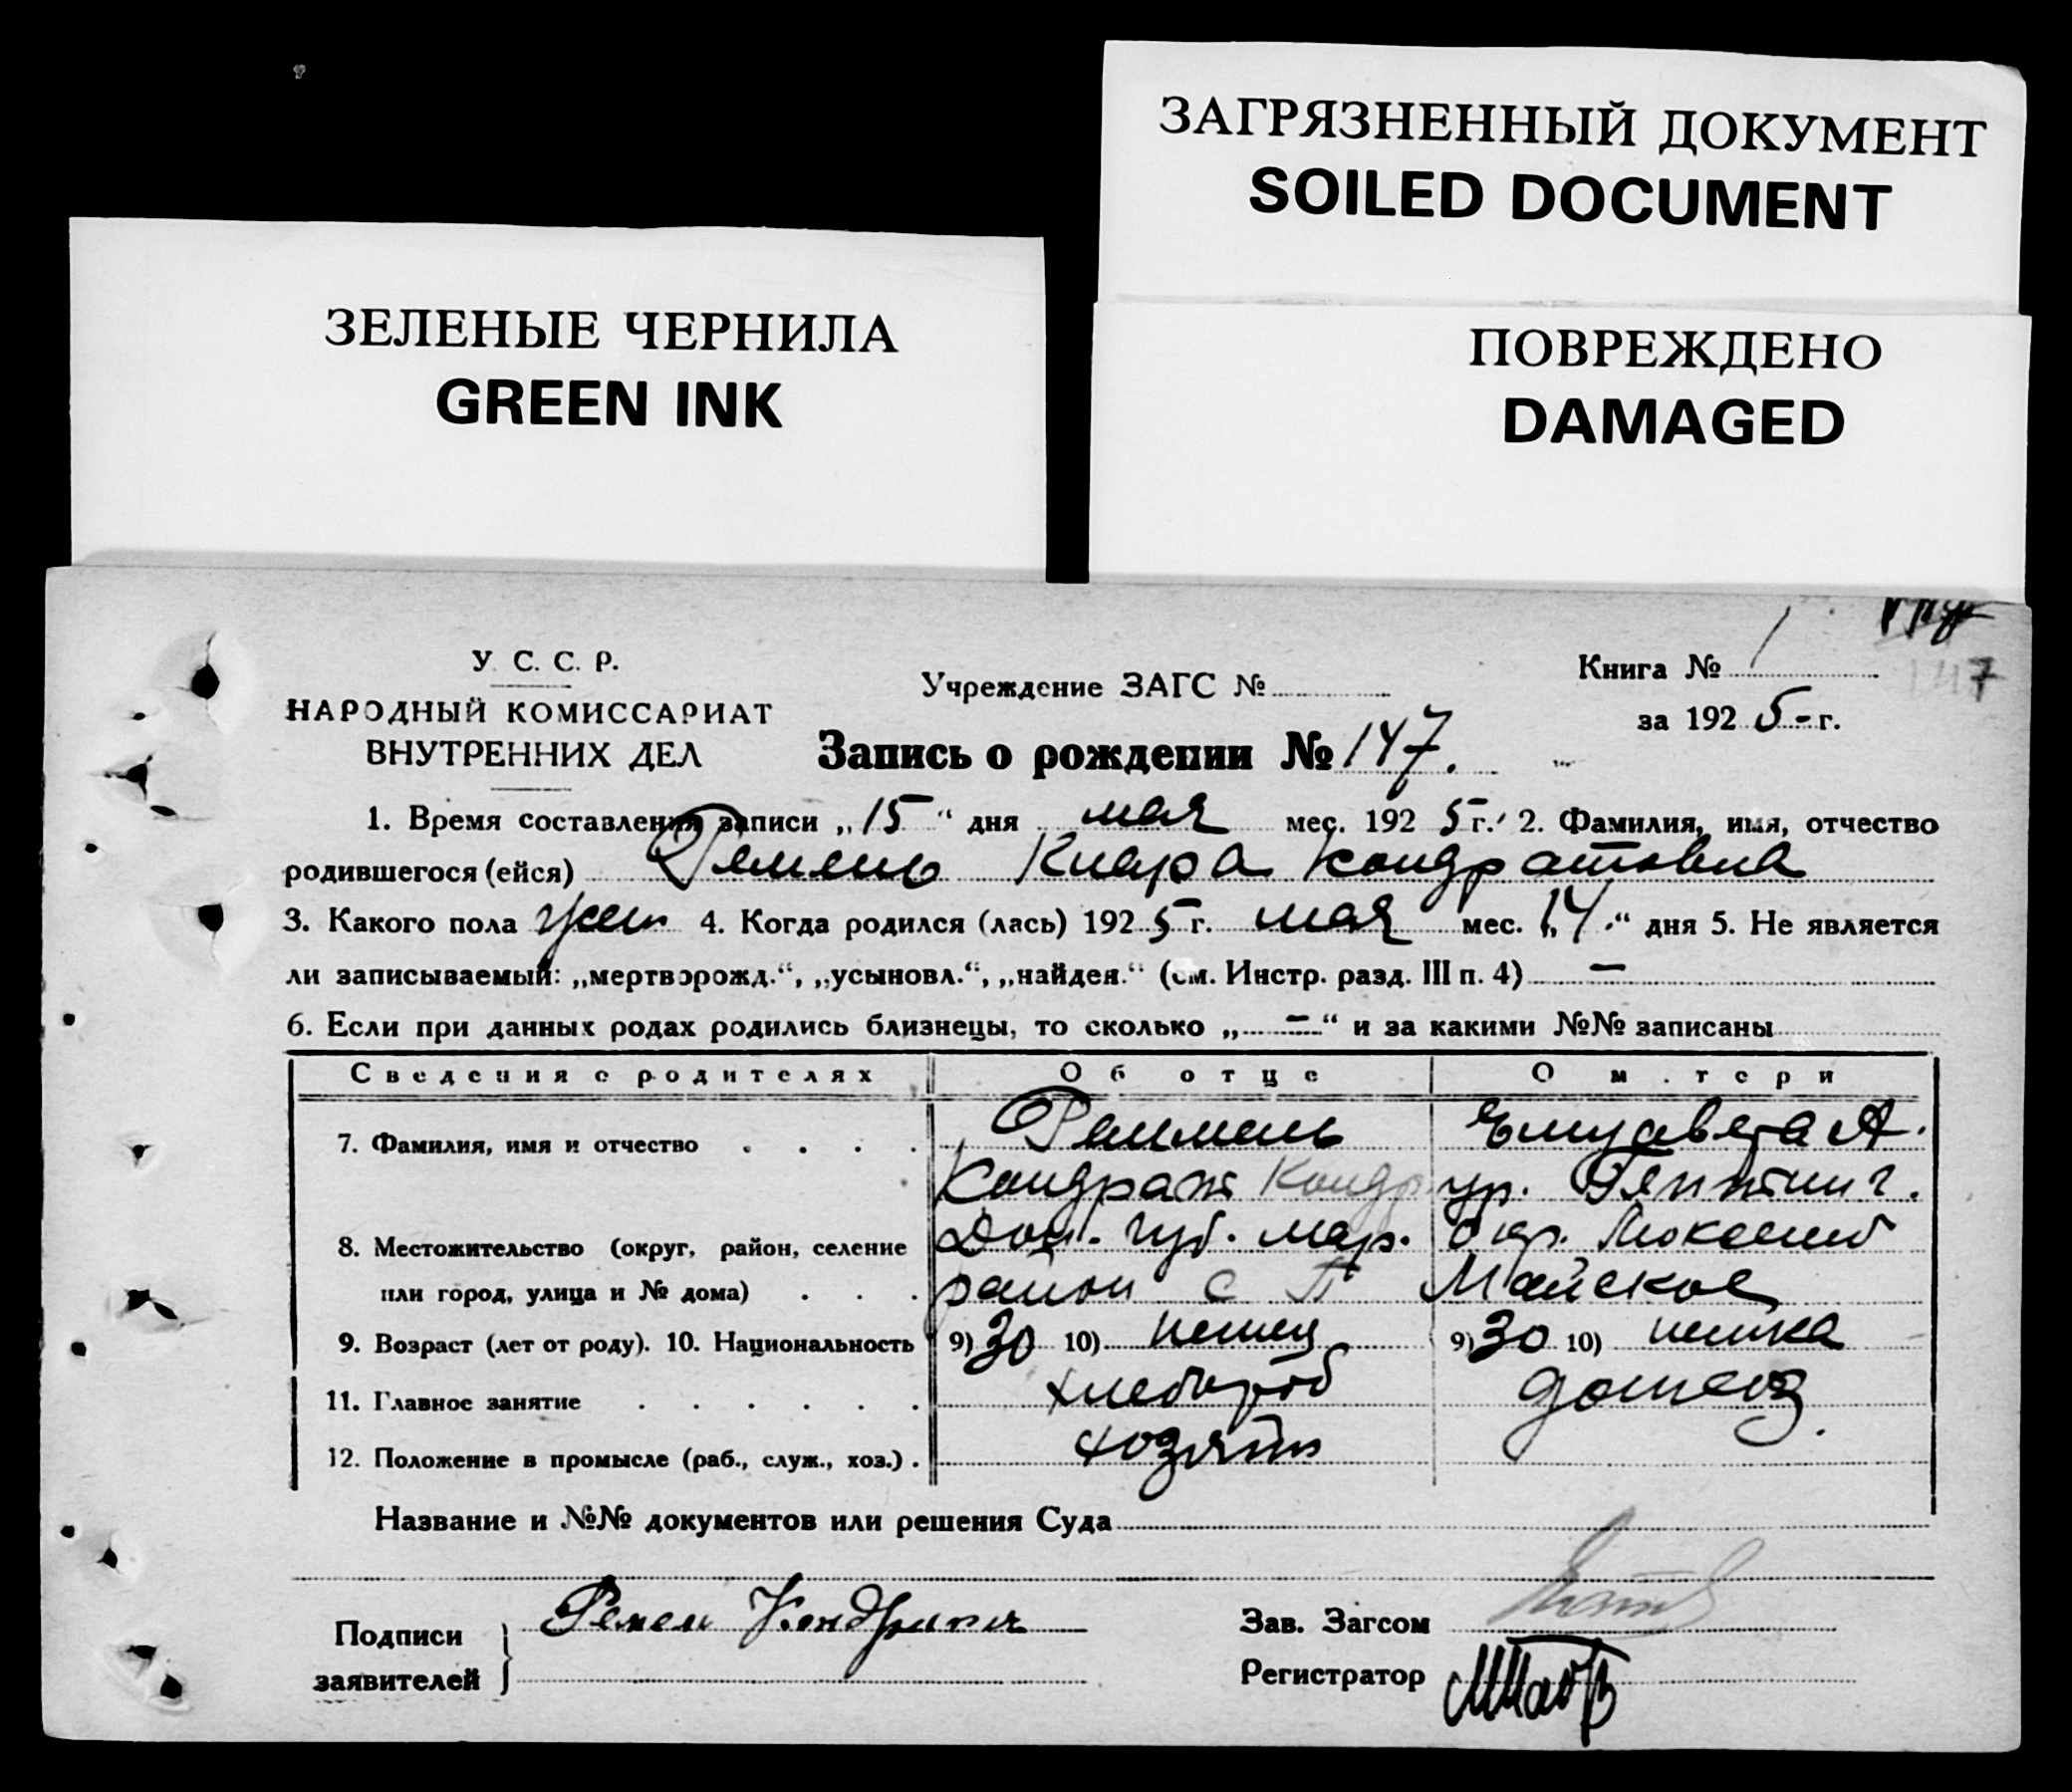 ЗАГРЯЗНЕННЫЙ ДОКУМЕНТ
SOILED DOCUMENT
ЗЕЛЕНЫЕ ЧЕРНИЛА
GREEN INK
ПОВРЕЖДЕНО
DAMAGED
У. С. С. Р.
НАРОДНЫЙ КОМИССАРИАТ
ВНУТРЕННИХ ДЕЛ
Учреждение ЗАГС №
Книга № 1
147
за 1925 г.
Запись о рождении № 147.
1. Время составления записи „15“ дня мая мес. 1925 г. 2. Фамилия, имя, отчество
родившегося (ейся) Клара Кондратовна
3. Какого пола жен 4. Когда родился (лась) 1925 г. мая мес. „14“ дня 5. Не является
ли записываемый: „мертворожд.“, „усыновл.“, „найден.“ (см. Инстр. разд. III п. 4) —
6. Если при данных родах родились близнецы, то сколько „—“ и за какими №№ записаны
Сведения о родителях Об отце О матери
7. Фамилия, имя и отчество Елизавета А.
Кондрат Кондр ур.
8. Местожительство (округ, район, селение Дон. губ. Мар. окр.
или город, улица и № дома) район с Майское
9. Возраст (лет от роду). 10. Национальность 9) 30 10) немец 9) 30 10) немка
11. Главное занятие хлебороб домхоз.
12. Положение в промысле (раб., служ., хоз.) хозяин
Название и №№ документов или решения Суда
Подписи
заявителей
Зав. Загсом
Регистратор